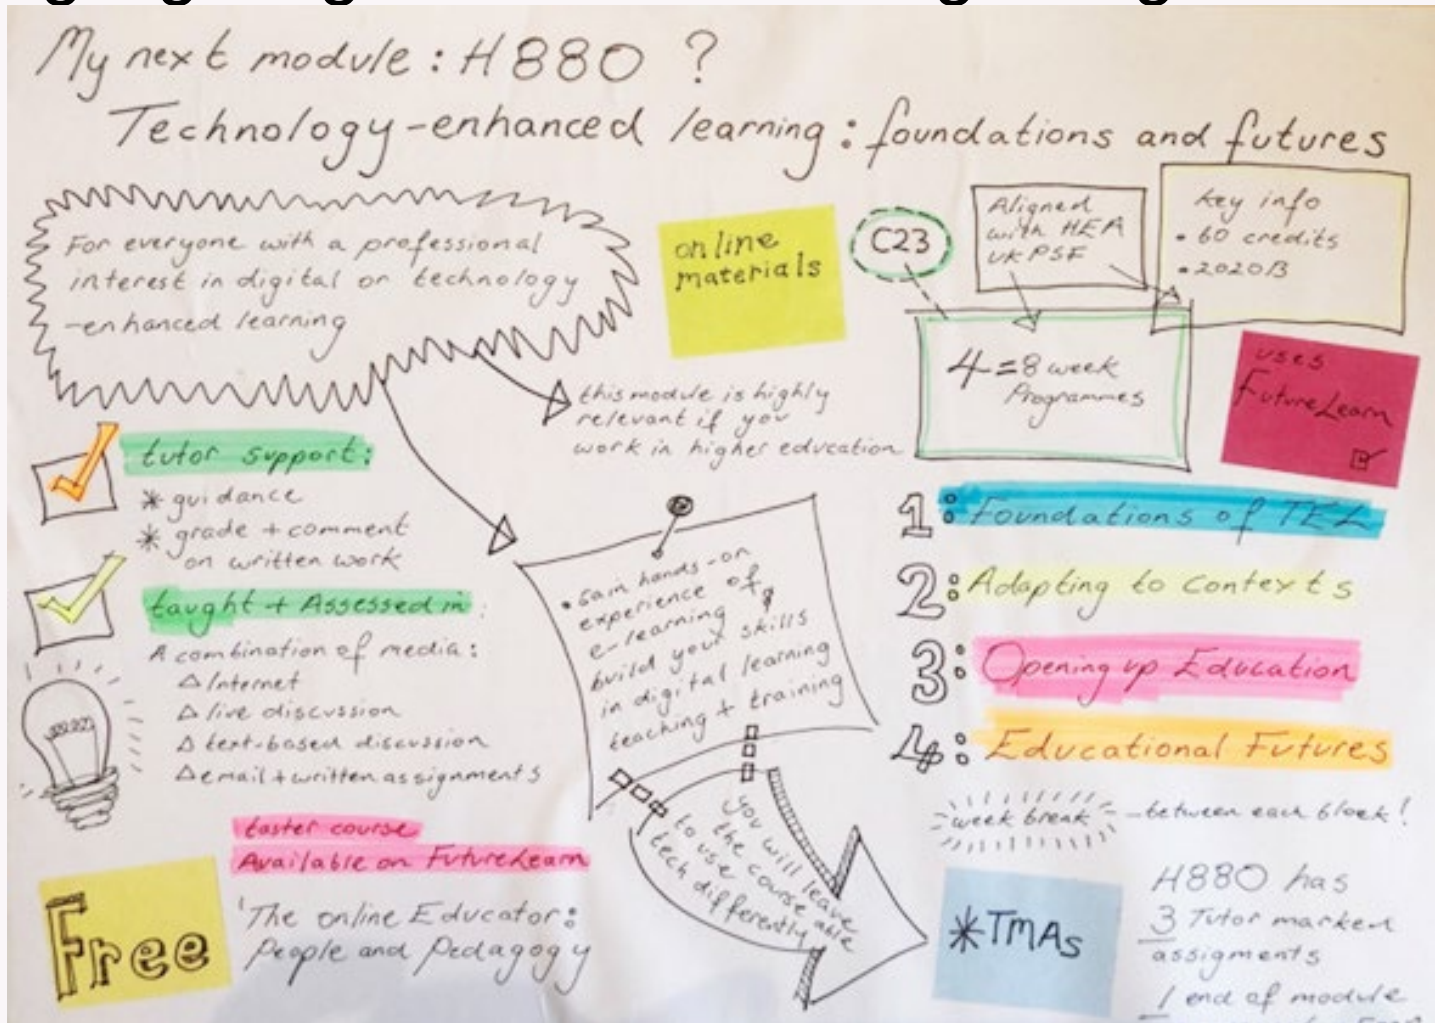 My next module: H880 ?
Technology-enhanced learning: foundations and futures
For everyone with a professional
interest in digital or technology
-enhanced learning
online
materials
C23
Aligned
with HEA
UKPSF
key info
• 60 credits
• 2020B
4=8 week
Programmes
uses
FutureLearn
this module is highly
relevant if you
work in higher education
tutor support:
* guidance
* grade + comment
on written work
taught + Assessed in:
A combination of media:
△ Internet
△ live discussion
△ text-based discussion
△ email + written assignments
• Gain hands-on
experience of
e-learning &
build your skills
in digital learning
teaching + training
you will leave
the course able
to use
tech differently
1: Foundations of TEL
2: Adapting to contexts
3: Opening up Education
4: Educational Futures
week break - between each block!
taster course
Available on FutureLearn
Free
'The online Educator:
People and Pedagogy
*TMAs
H880 has
3 Tutor marked
assigments
1 end of module